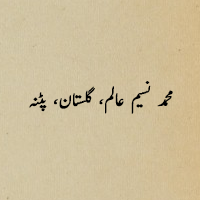 محمد نسیم عالم، گلستان، پٹنہ